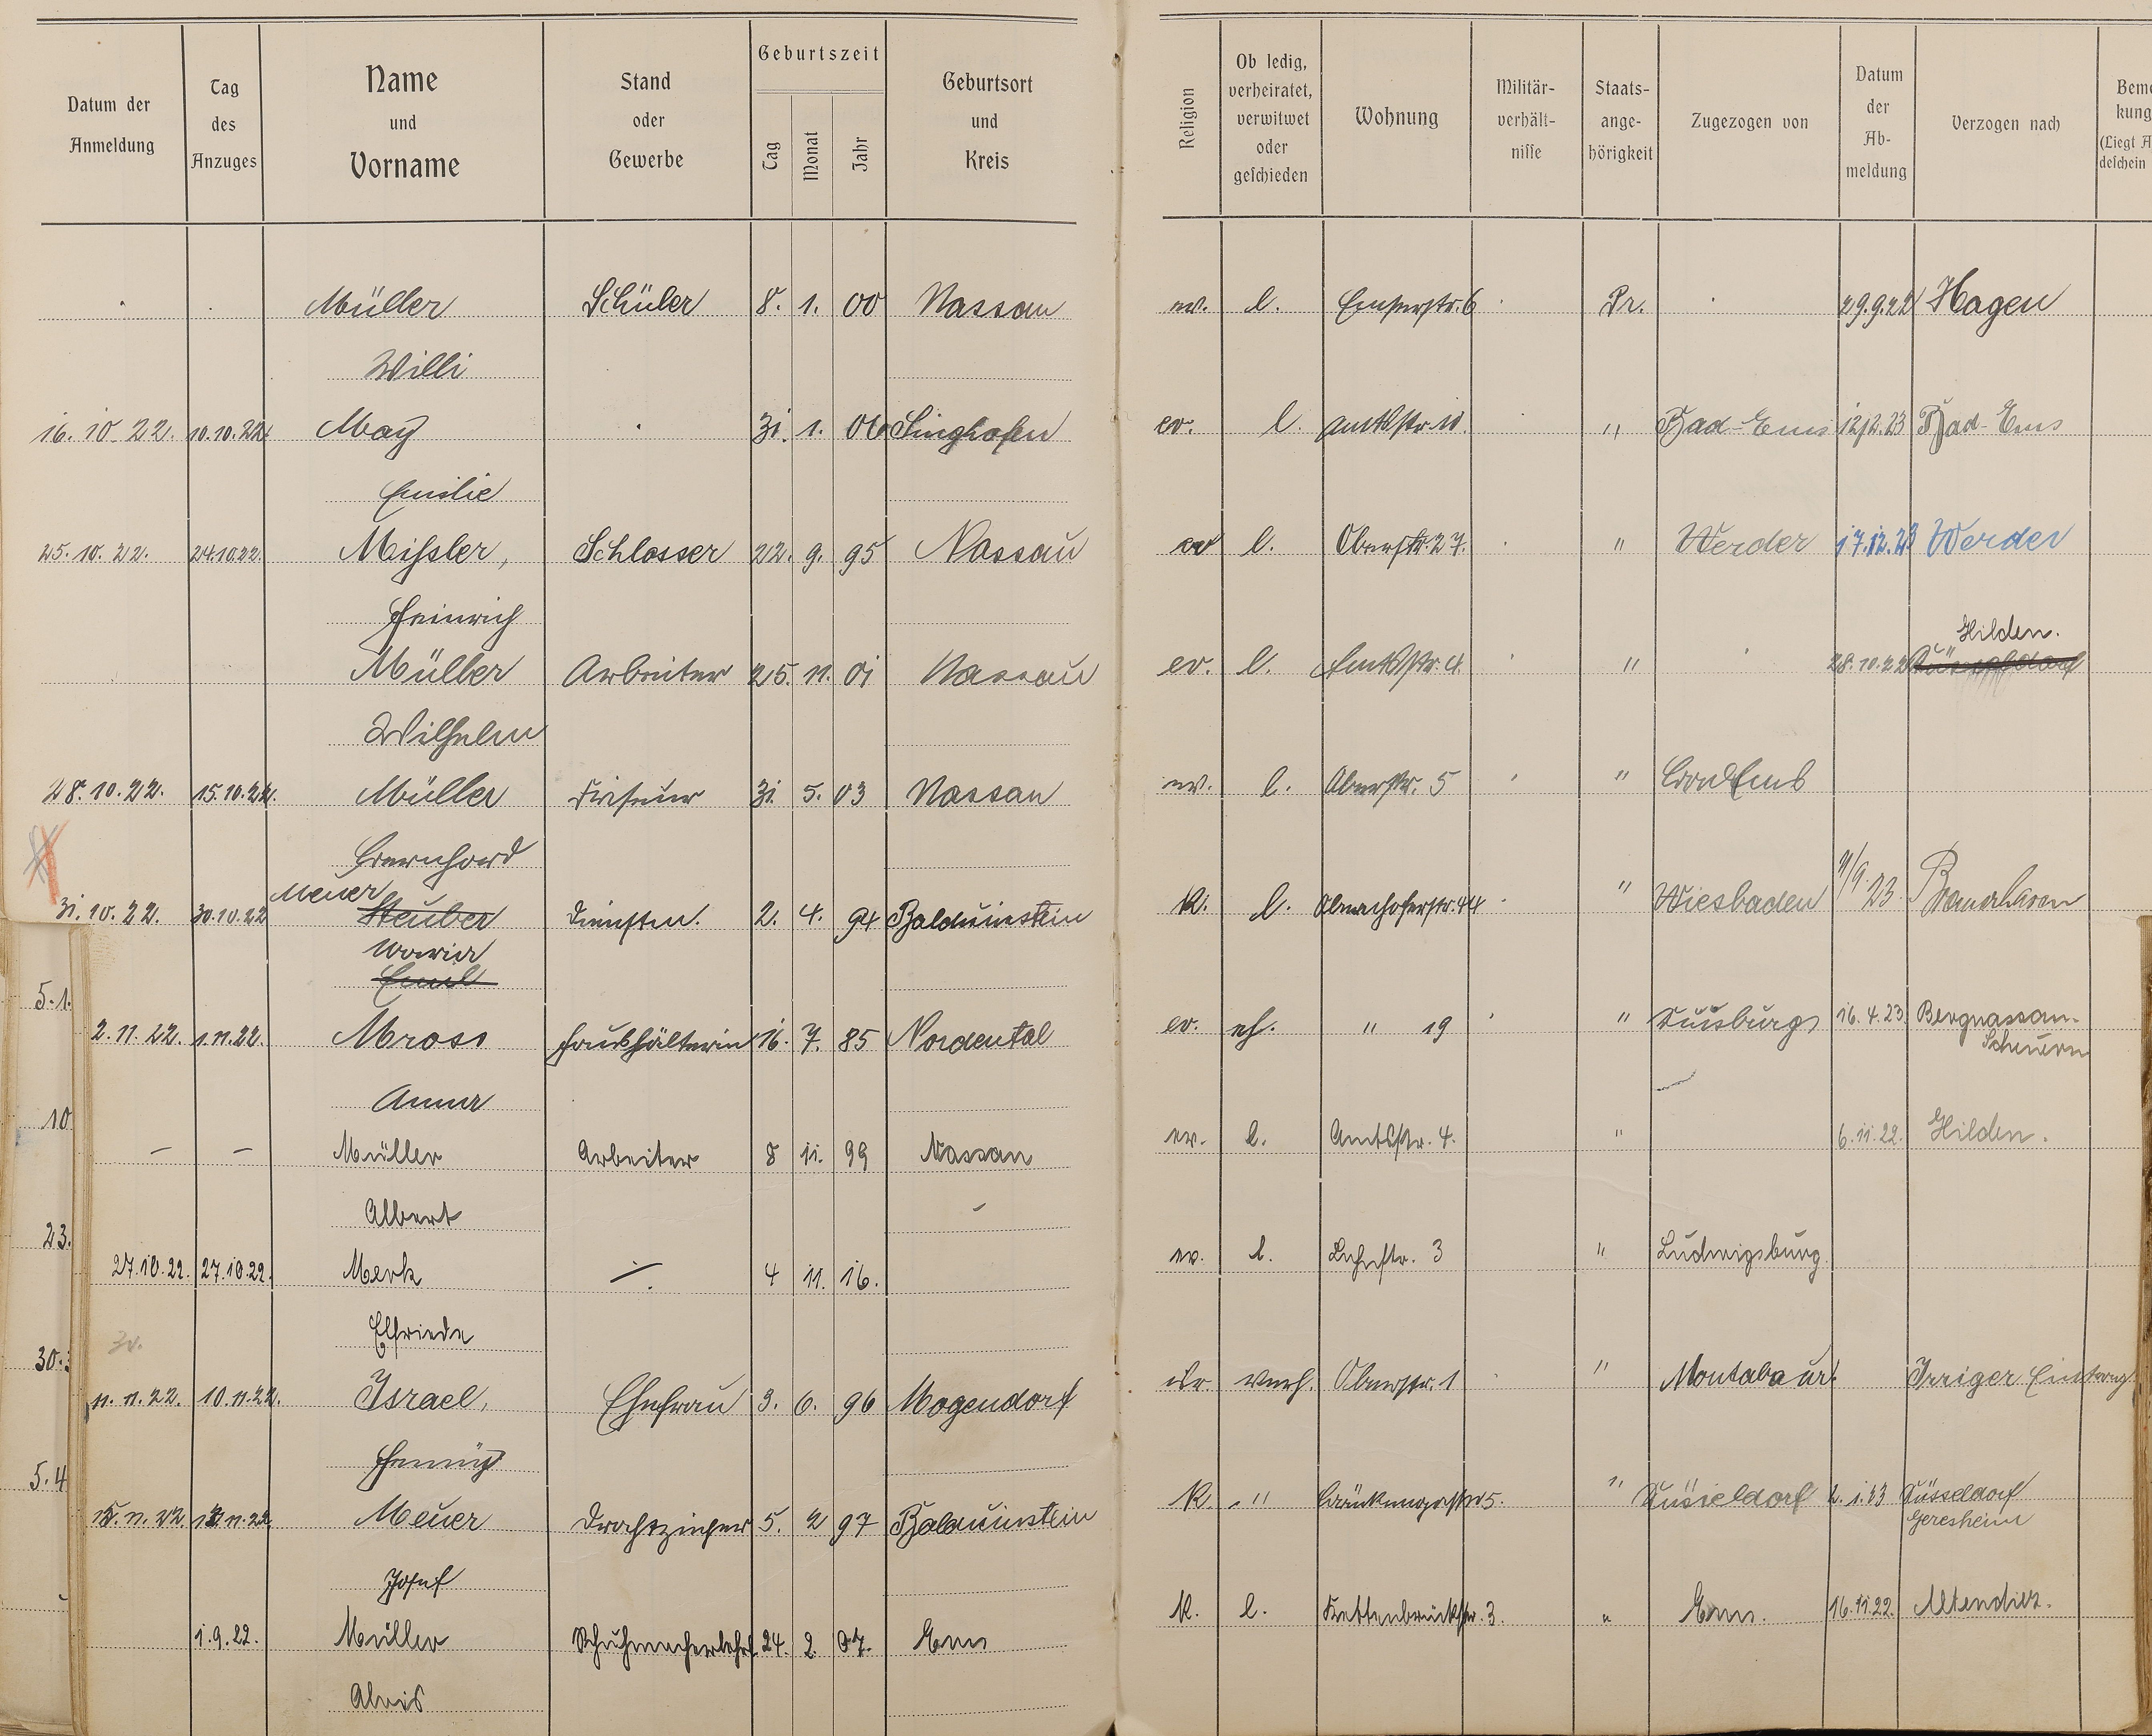 Datum der Anmeldung | Tag des Anzuges | Name und Vorname | Stand oder Gewerbe | Geburtszeit Tag Monat Jahr | Geburtsort und Kreis | Religion | Ob ledig, verheiratet, verwitwet oder geschieden | Wohnung | Militär-verhält-nisse | Staats-ange-hörigkeit | Zugezogen von | Datum der Ab-meldung | Verzogen nach
Müller Schüler 8. 1. 00 Nassau ev. l. Emserstr. 6 Pr. 29.9.22 Hagen
Willi
16. 10. 22. 10.10.22 May 31. 1. 06 Singhofen ev. l. Amtsstr. 10. " Bad-Ems 12/2.23 Bad-Ems
Emilie
25. 10. 22. 24.10.22. Mißler, Schlosser 22. 9. 95 Nassau ev l. Oberstr. 27. " Werder 17.12.23 Werder
Heinrich
Hilden.
Müller Arbeiter 25. 11. 01 Nassau ev. l. Amtsstr. 4. " 28.10.22
Wilhelm
28. 10. 22. 15.10.22. Müller Friseur 31. 5. 03 Nassau ev. l. Oberstr. 5 " Bad Ems
Bernhard
Meuer
31. 10. 22. 30.10.22 Steuber Dienstm. 2. 4. 94 Balduinstein K. l. Obernhoferstr. 44 " Wiesbaden 4/9.23
Maria
Emil
5.1.
2. 11. 22. 1.11.22. Mross Haushälterin 16. 7. 85 Nordental ev. " 19 " Duisburg 16.4.23. Bergnassau-
Scheuern
Anna
10
– – Müller Arbeiter 8 11. 99 Nassau ev. l. Amtsstr. 4. " 6.11.22. Hilden.
Albert
23.
27.10.22. 27.10.22. Merk 4 11. 16. ev. l. Lahnstr. 3 " Ludwigsburg
Elfriede
30.
11. 11. 22. 10.11.22. Israel, Ehefrau 3. 6. 96 Mogendorf isr. verh. Oberstr. 1 " Montabaur. Irriger Eintrag
Henny
5.4
11. 22 11.22. Meuer Drahtzieher 5. 2 97 Balduinstein K. " " Düsseldorf 2. 1. 23 Düsseldorf
Geresheim
Josef
1.9.22. Müller Schuhmacherlehrl. 24. 2. 07. Ems K. l. Kettenbrückstr. 3. " Ems. 16.11.22. Altendiez.
Alois